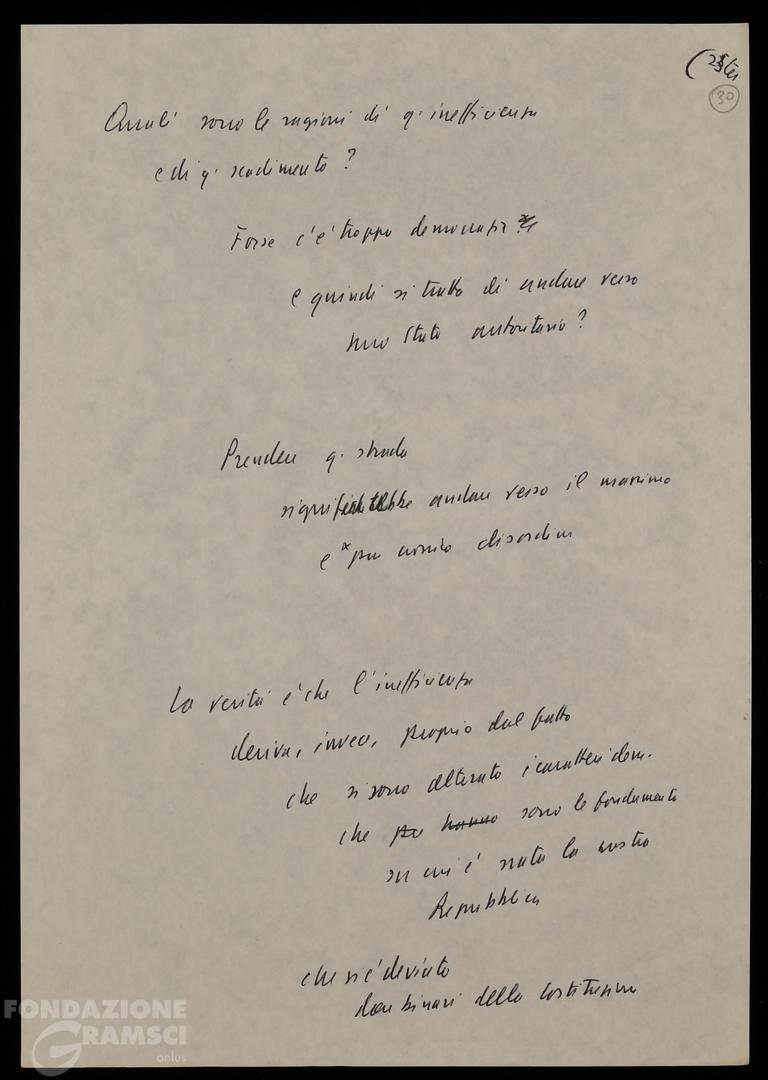 (25ter
30
Quali sono le ragioni di q. inefficienza
e di q. scadimento?
Forse c'è troppa democrazia?
e quindi si tratta di andare verso
uno Stato autoritario?
Prendere q. strada
significherebbe andare verso il massimo
e disordine
La verità è che l'inefficienza
deriva, invece, proprio dal fatto
che si sono alterato i caratteri dem.
che hanno sono le fondamenta
su cui è nata la nostra
Repubblica
che si è deviato
dai binari della Costituzione
FONDAZIONE
GRAMSCI
onlus